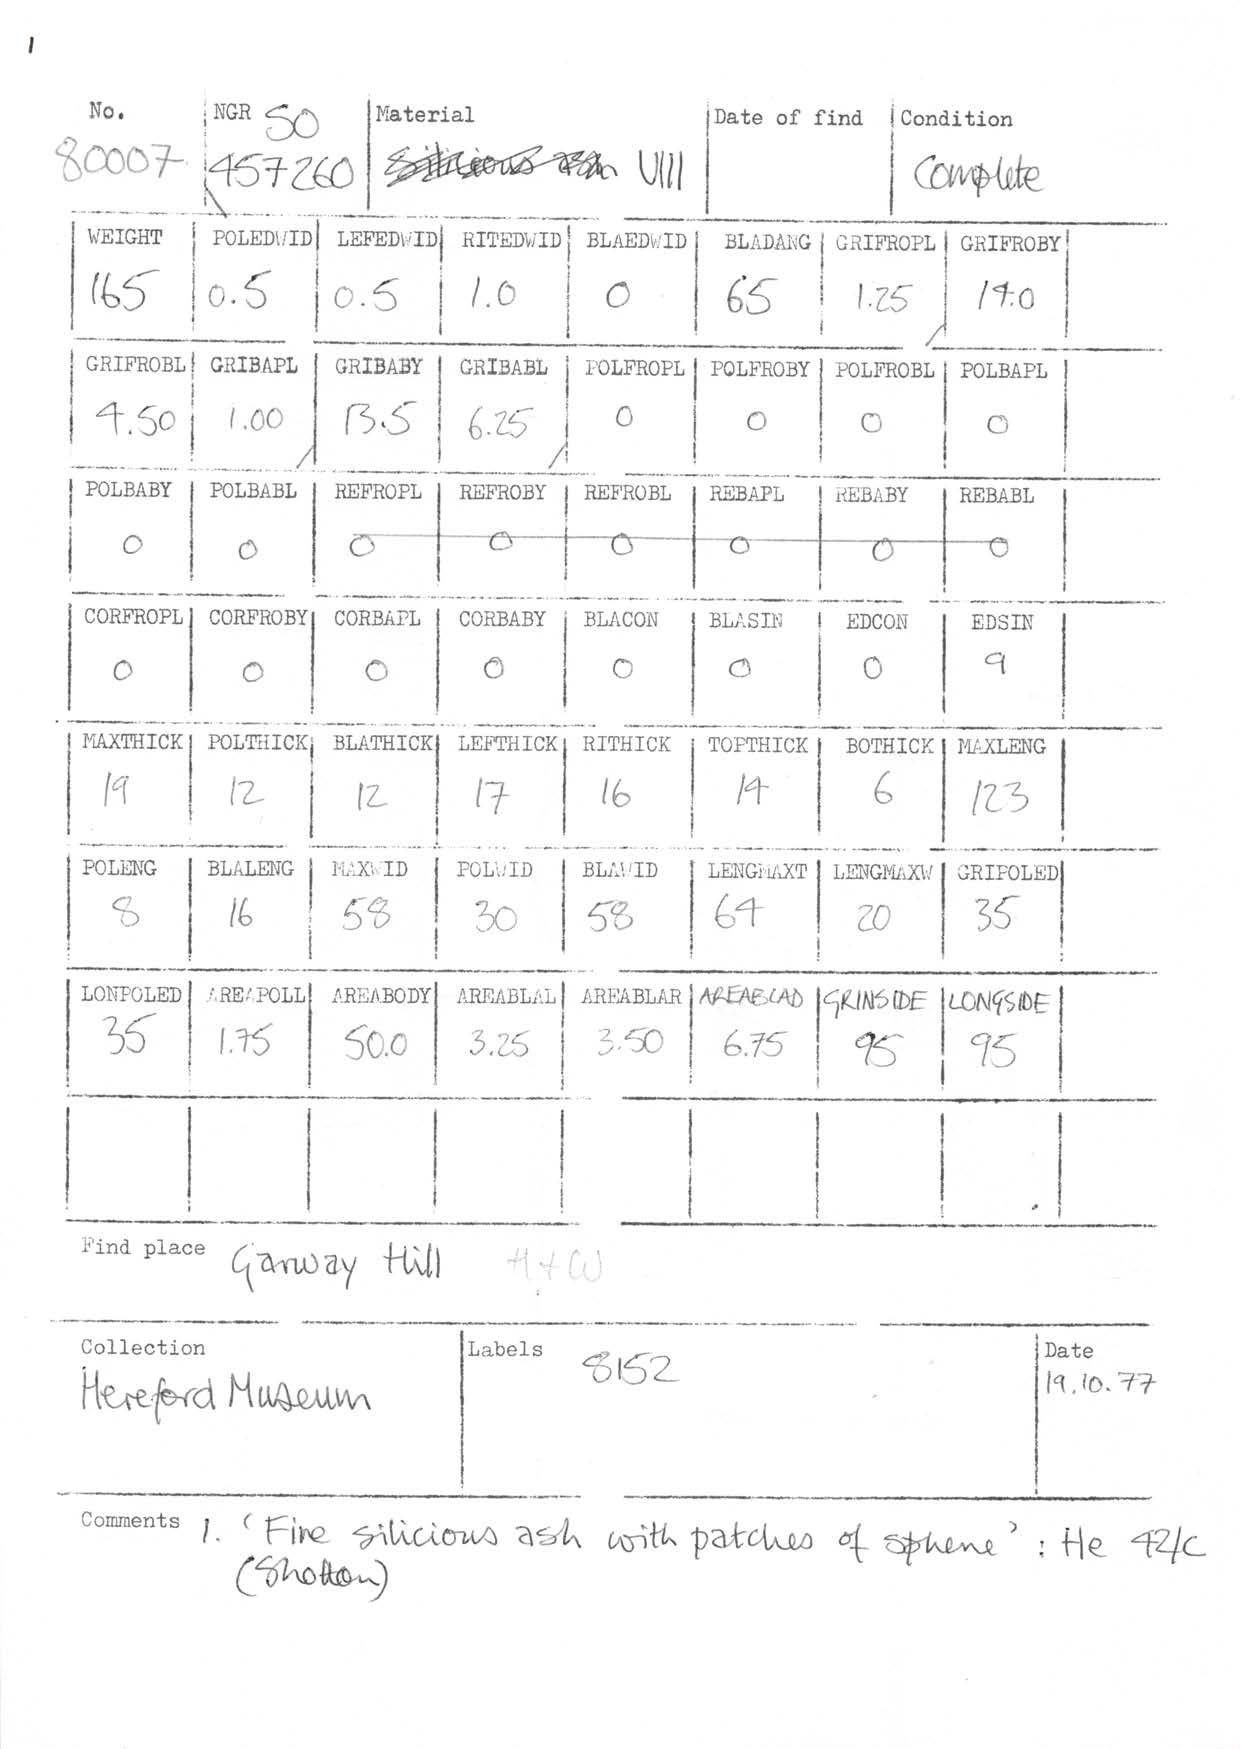 1
No. NGR SO Material Date of find Condition
80007 457260 Silicious ash VIII Complete
WEIGHT POLEDWID LEFEDWID RITEDWID BLAEDWID BLADANG GRIFROPL GRIFROBY
165 0.5 0.5 1.0 0 65 1.25 14.0
GRIFROBL GRIBAPL GRIBABY GRIBABL POLFROPL POLFROBY POLFROBL POLBAPL
4.50 1.00 13.5 6.25 0 0 0 0
POLBABY POLBABL REFROPL REFROBY REFROBL REBAPL REBABY REBABL
0 0 0 0 0 0 0 0
CORFROPL CORFROBY CORBAPL CORBABY BLACON BLASIN EDCON EDSIN
0 0 0 0 0 0 0 9
MAXTHICK POLTHICK BLATHICK LEFTHICK RITHICK TOPTHICK BOTHICK MAXLENG
19 12 12 17 16 14 6 123
POLENG BLALENG MAXWID POLWID BLAWID LENGMAXT LENGMAXW GRIPOLED
8 16 58 30 58 64 20 35
LONPOLED AREAPOLL AREABODY AREABLAL AREABLAR AREABLAD GRINSIDE LONGSIDE
35 1.75 50.0 3.25 3.50 6.75 95 95
Find place Garway Hill H+W
Collection Labels 8152 Date
Hereford Museum 19.10.77
Comments 1. 'Fine silicious ash with patches of sphene' : He 42/c
(Shotton)